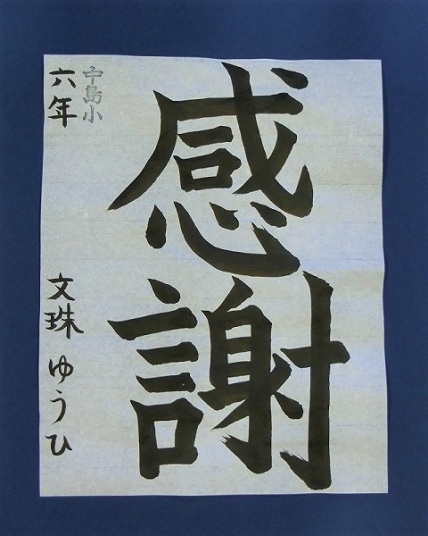 感謝
中島小
六年 文珠 ゆうひ